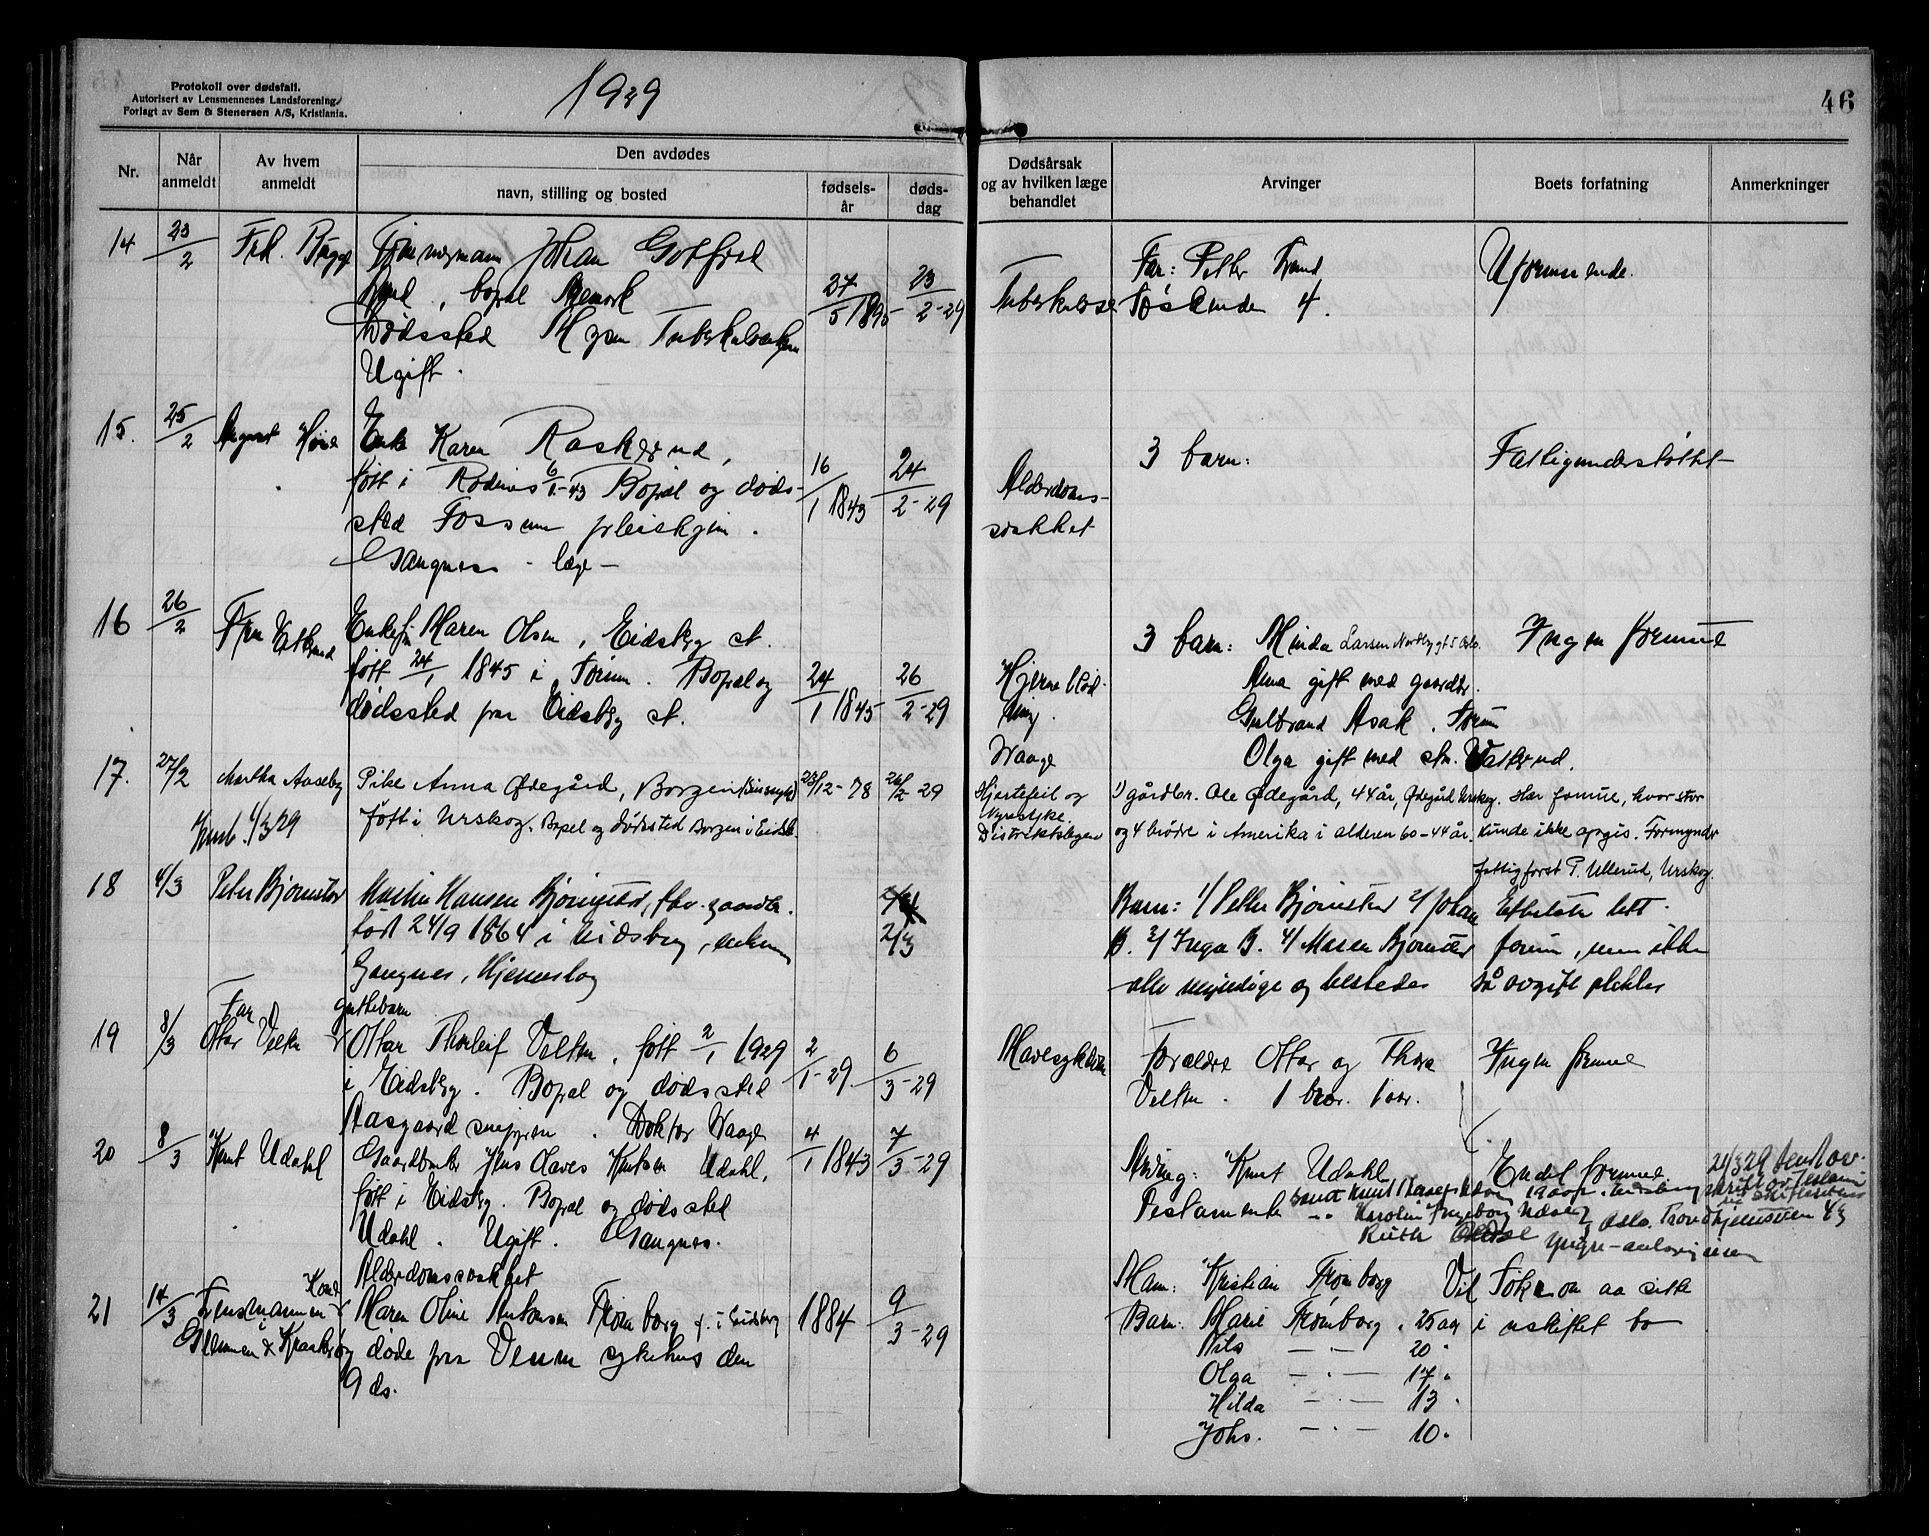 Protokoll over dødsfall.
Autorisert av Lensmennenes Landsforening.
Forlagt av Sem & Stenersen A/S, Kristiania.
1929
46
Nr.
Når anmeldt
Av hvem anmeldt
Den avdødes
navn, stilling og bosted
fødsels-år
døds-dag
Dødsårsak og av hvilken læge behandlet
Arvinger
Boets forfatning
Anmerkninger
14 23/2 Frk. Bugge
Johan Gotfred
bopæl
Dødssted Mysen
Ugift.
27/5 1895 23/2-29
Tuberkulose
Far: Petter
Søskende 4.
Uformuende.
15. 25/2 August
Enke Karen Raskerud,
født i Rødenes 6/1-43 Bopæl og døds-
sted Fossum pleiehjem.
Gangnes - læge -
16/1 1843 24/2-29
Alderdoms-
svakhet
3 barn:
Fattigunderstøttet
16 26/2 Fru
Enkefru Maren Olsen, Eidsberg st.
født 24/1 1845 i Torum. Bopæl og
dødssted paa Eidsberg st.
24/1 1845 26/2-29
Hjerneblød-
ning.
Waage
3 barn: Minda Larsen Nordbygt 5 Oslo.
Anna gift med gaardbr.
Gulbrand Asak.
Olga gift med stm. Vatrud.
Ingen formue
17. 27/2 Martha Aaseby
1/3 29
Pike Anna Ødegård, Borgen
født i Urskog. Bopel og dødssted Borgen i Eidsb.
23/12-78 26/2-29
Hjertefeil og
Nyresyke.
Distriktslegen
1) gårdbr. Ole Ødegård, 44 år, Ødegård Urskog.
og 4 brødre i Amerika i alderen 60-44 år.
Har formue, hvor stor
kunde ikke opgis. Formynder
fattigforst P. Ullerud, Urskog.
18 4/3 Peter Bjørnstad
Martin Hansen Bjørnstad, fhv. gaardbr.
født 24/9 1864 i Eidsberg, enkem
Gangnes, Hjerneslag
2/3
Barn: 1/ Petter Bjørnstad 2/ Johan
B. 3/ Inga B. 4/ Maren Bjørnstad
alle myndige og
Efterlate litt
form, men ikke
så avgift
19 8/3 Far
Ottar Velten
guttebarn
Ottar Thorleif Velten, født 2/1 1929
i Eidsberg. Bopæl og dødssted
Aasgaard. Doktor Waage
2/1-29. 6/3-29
Mavesykdom
Forældre Ottar og Thora
Velten. 1 bror. 1 aar.
Ingen formue
20 8/3 Knut Udahl
Gaardbruker Jens Olaves Knutsen Udahl,
født i Eidsberg. Bopæl og dødssted
Udahl. Ugift. Gangnes.
Alderdomssvakhet
4/1 1843 7/3-29
Arving: Knut Udahl
Testamente
Karoline Ingeborg
Ruth
Endel formue
Oslo. Trondhjemsveien 43
21/3 29
21 14/3 Lensmannen
Maren Oline Antonsen Trømborg f. i Eidsberg
døde paa Veum sykehus den
9 ds.
1884 9/3-29
Man: Kristian Trømborg
Barn: Marie Trømborg, 25 aar
Nils — " — 20 "
Olga — " — 17 "
Hilda — " — 13 "
Johs. — " — 10 "
Vil søke om aa sitte
i uskiftet bo